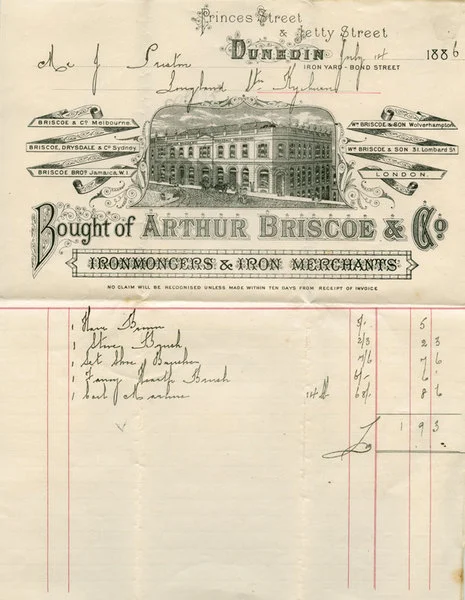 Princes Street
& Jetty Street
DUNEDIN July 1st 1886
IRON YARD - BOND STREET
Mr J Preston
Longland Stn Kyeburn
BRISCOE & Co Melbourne.
BRISCOE, DRYSDALE & Co Sydney
BRISCOE BROs Jamaica. W.I.
Wm BRISCOE & SON Wolverhampton.
Wm BRISCOE & SON 31. Lombard St
LONDON.
Bought of ARTHUR BRISCOE & Co
IRONMONGERS & IRON MERCHANTS
NO CLAIM WILL BE RECOGNISED UNLESS MADE WITHIN TEN DAYS FROM RECEIPT OF INVOICE
1 Hair Broom 5/- 5
1 Stove Brush 2/3 2 3
1 Set Shoe Brushes 7/6 7 6
1 Fancy Hearth Brush 6/- 6
1 14 lb 8 6
£ 1 9 3